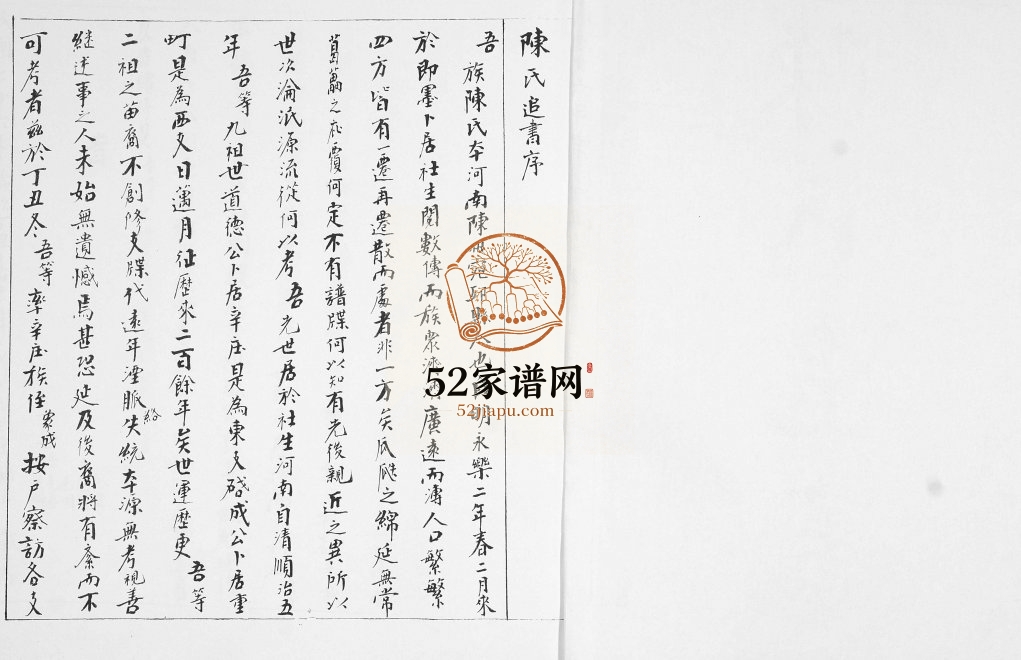 陳氏追書序
吾族陳氏本河南陳 也 明永樂二年春二月來
於即墨卜居社生閱數傳而族衆 廣遠而溥人口繁繁
四方皆有一遷再遷散而處者非一方矣瓜瓞之綿延無常
葛藟之 何定不有譜牒何以知有先後親近之異所以
世次淪泯源流從何以考吾先世居於社生河南自清順治五
年吾等九祖世道德公卜居辛庄是為東支 成公卜居重
町是為西支日邁月征歷來二百餘年矣世運歷更吾等
二祖之苗裔不創修支牒代遠年湮脈絡失統本源無考視善
継述事之人未始無遺憾焉甚恐延及後裔將有紊而不
可考者茲於丁丑冬吾等率辛庄族侄 成按戶察訪各支
52家谱网
52jiapu.com